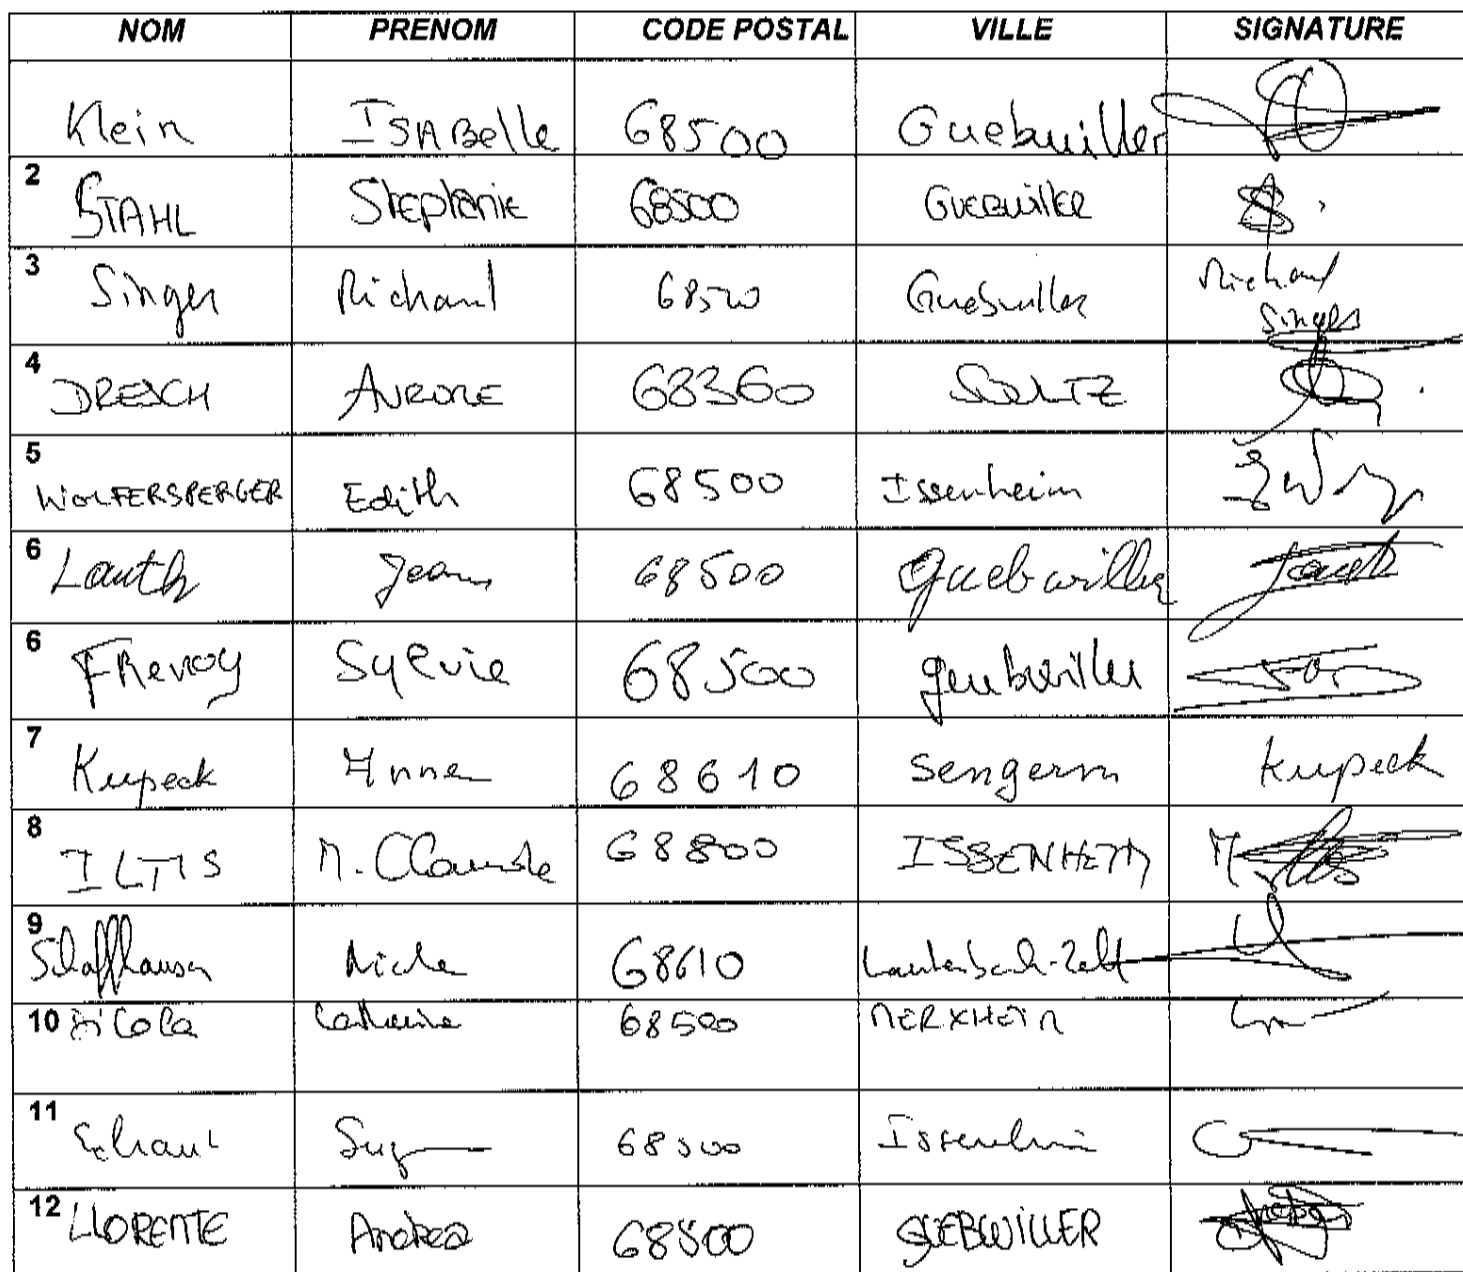 NOM PRENOM CODE POSTAL VILLE SIGNATURE
Klein ISABelle 68500 Guebwiller
2 STAHL Stephanie 68500 GUEBWILLER
3 Singer Richard 68500 Guebwiller Richard Singer
4 DRESCH AURORE 68360 SOULTZ
5 WOLFERSPERGER Edith 68500 Issenheim
6 Lauth Jean 68500 Guebwiller
6 FRenoy Sylvie 68500 guebwiller
7 Kupeck Anne 68610 Sengern Kupeck
8 ILTIS M. Claude 68800 ISSENHEIM
9 Schaffhauser 68610 Lautenbach-Zell
10 Catherine 68500 MERXHEIM
11 68500 Issenheim
12 LLORENTE Andrea 68500 GUEBWILLER